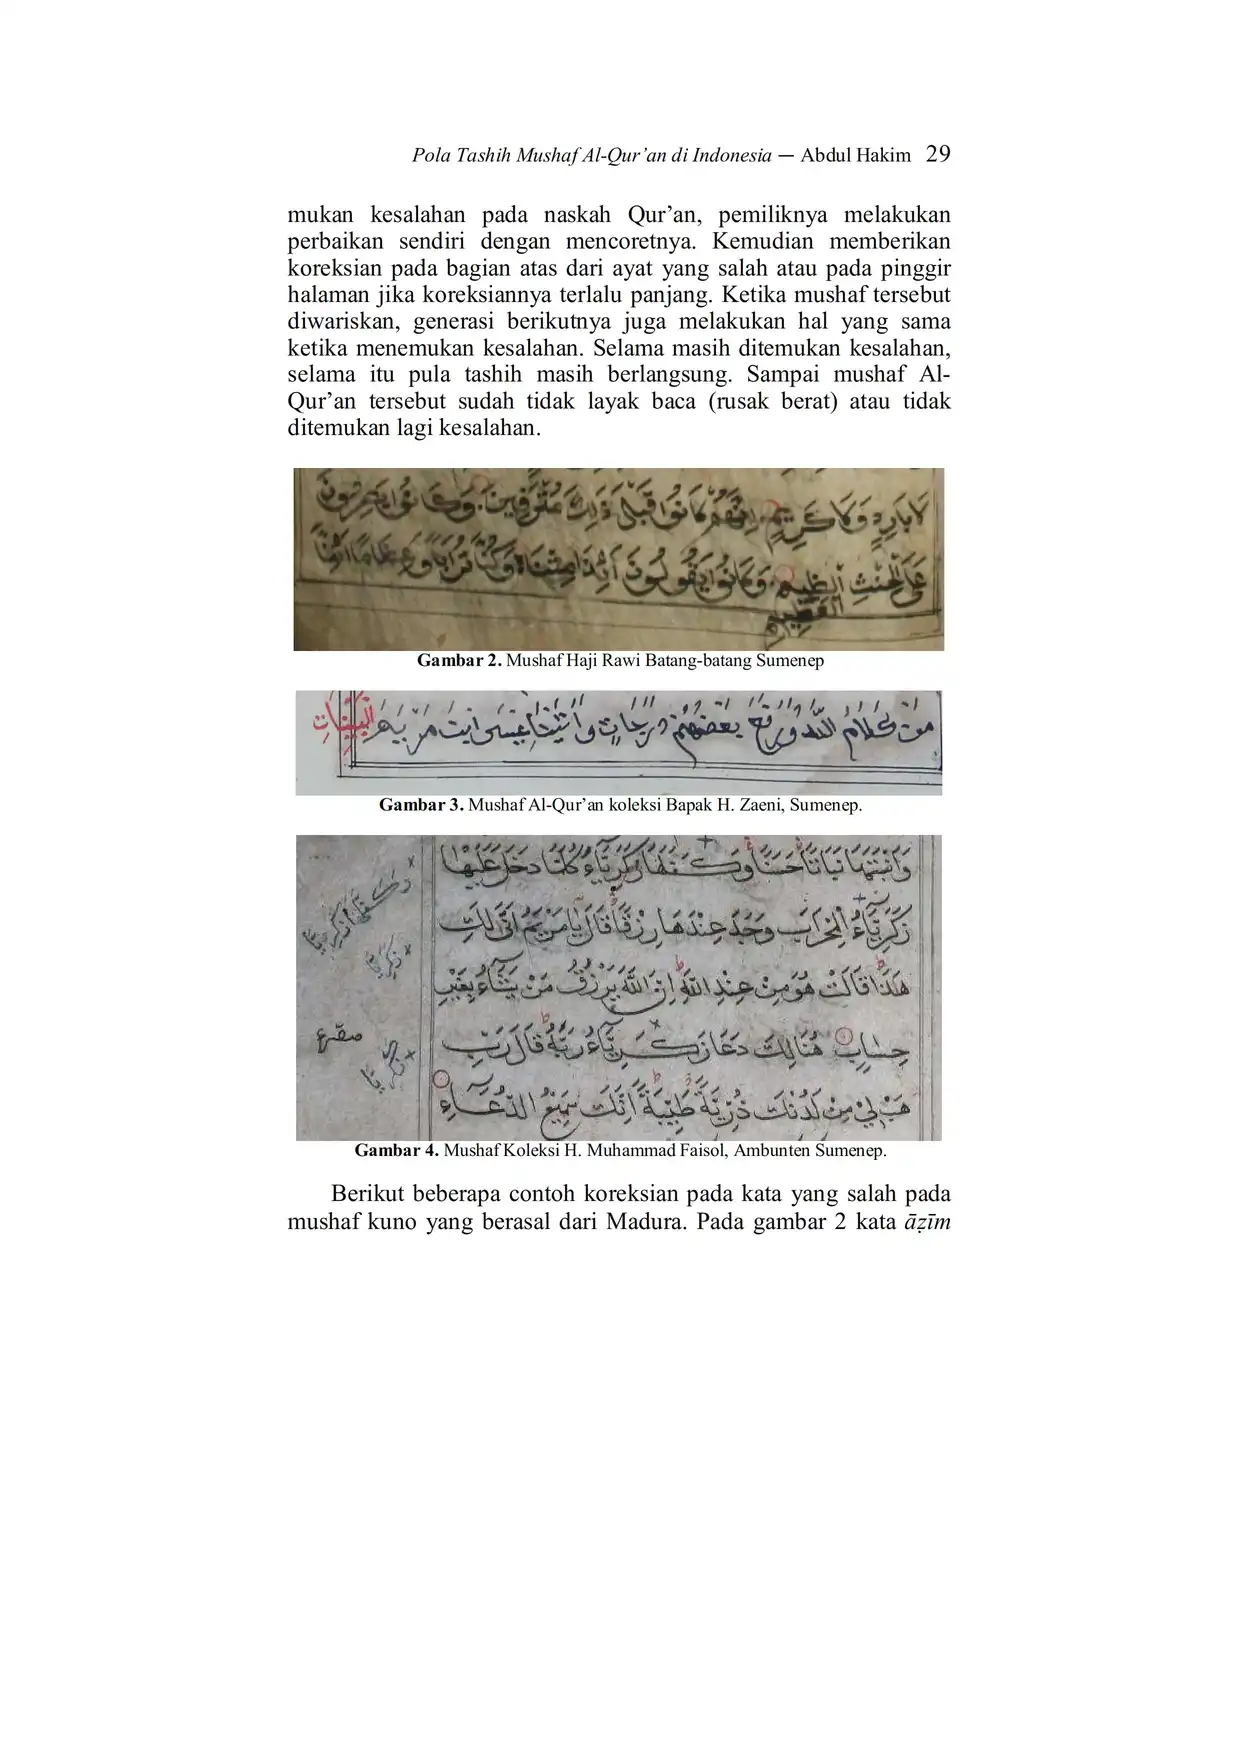 Pola Tashih Mushaf Al-Qur’an di Indonesia — Abdul Hakim 29
mukan kesalahan pada naskah Qur’an, pemiliknya melakukan
perbaikan sendiri dengan mencoretnya. Kemudian memberikan
koreksian pada bagian atas dari ayat yang salah atau pada pinggir
halaman jika koreksiannya terlalu panjang. Ketika mushaf tersebut
diwariskan, generasi berikutnya juga melakukan hal yang sama
ketika menemukan kesalahan. Selama masih ditemukan kesalahan,
selama itu pula tashih masih berlangsung. Sampai mushaf Al-
Qur’an tersebut sudah tidak layak baca (rusak berat) atau tidak
ditemukan lagi kesalahan.
لَا بَارِدٍ وَلَا كَرِيمٍ اِنَّهُمْ كَانُوا قَبْلَ ذَلِكَ مُتْرَفِينَ وَكَانُوا يُصِرُّونَ
عَلَى الْحِنْثِ الْظِيمِ وَكَانُوا يَقُولُونَ أَئِذَا مِتْنَا وَكُنَّا تُرَابًا وَعِظَامًا أَئِنَّا
الْعَظِيمِ
Gambar 2. Mushaf Haji Rawi Batang-batang Sumenep
مَنْ كَلَامُ اللَّهُ وَرَفَعَ بَعْضَهُمْ دَرَجَاتٍ وَاٰتَيْنَا عِيْسَى ابْنَ مَرْيَمَ الْبَيِّنَاتِ
Gambar 3. Mushaf Al-Qur’an koleksi Bapak H. Zaeni, Sumenep.
وَاَنْبَتَهَا نَبَاتًا حَسَنًا وَكَفَّلَهَا زَكَرِيَّاءُ كُلَّمَا دَخَلَ عَلَيْهَا
زَكَرِيَّاءُ الْمِحْرَابَ وَجَدَ عِنْدَهَا رِزْقًا قَالَ يَا مَرْيَمُ اَنَّى لَكِ
هَذَا قَالَتْ هُوَ مِنْ عِنْدِ اللَّهِ اِنَّ اللَّهَ يَرْزُقُ مَنْ يَشَاءُ بِغَيْرِ
حِسَابٍ هُنَالِكَ دَعَا زَكَرِيَّاءُ رَبَّهُ قَالَ رَبِّ
هَبْ لِيْ مِنْ لَدُنْكَ ذُرِّيَّةً طَيِّبَةً اِنَّكَ سَمِيعُ الدُّعَآءِ
Gambar 4. Mushaf Koleksi H. Muhammad Faisol, Ambunten Sumenep.
Berikut beberapa contoh koreksian pada kata yang salah pada
mushaf kuno yang berasal dari Madura. Pada gambar 2 kata āẓīm